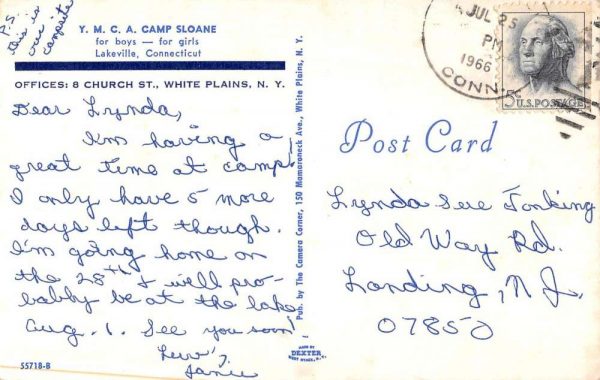 P.S.
this is
our
campsite
Y. M. C. A. CAMP SLOANE
for boys — for girls
Lakeville, Connecticut
OFFICES: 8 CHURCH ST., WHITE PLAINS, N. Y.
Dear Lynda,
I'm having a
great time at camp!
I only have 5 more
days left though.
I'm going home on
the 28th & will pro-
babby be at the lake
Aug. 1. See you soon!
Love,
Janie
55718-B
Pub. by The Camera Corner, 150 Mamaroneck Ave., White Plains, N. Y.
MADE BY
DEXTER
WEST NYACK, N.Y.
JUL 25
PM
1966
CONN
5c U.S. POSTAGE
Post Card
Lynda Sue Tonking
Old Way Rd.
Landing, N.J.
07850